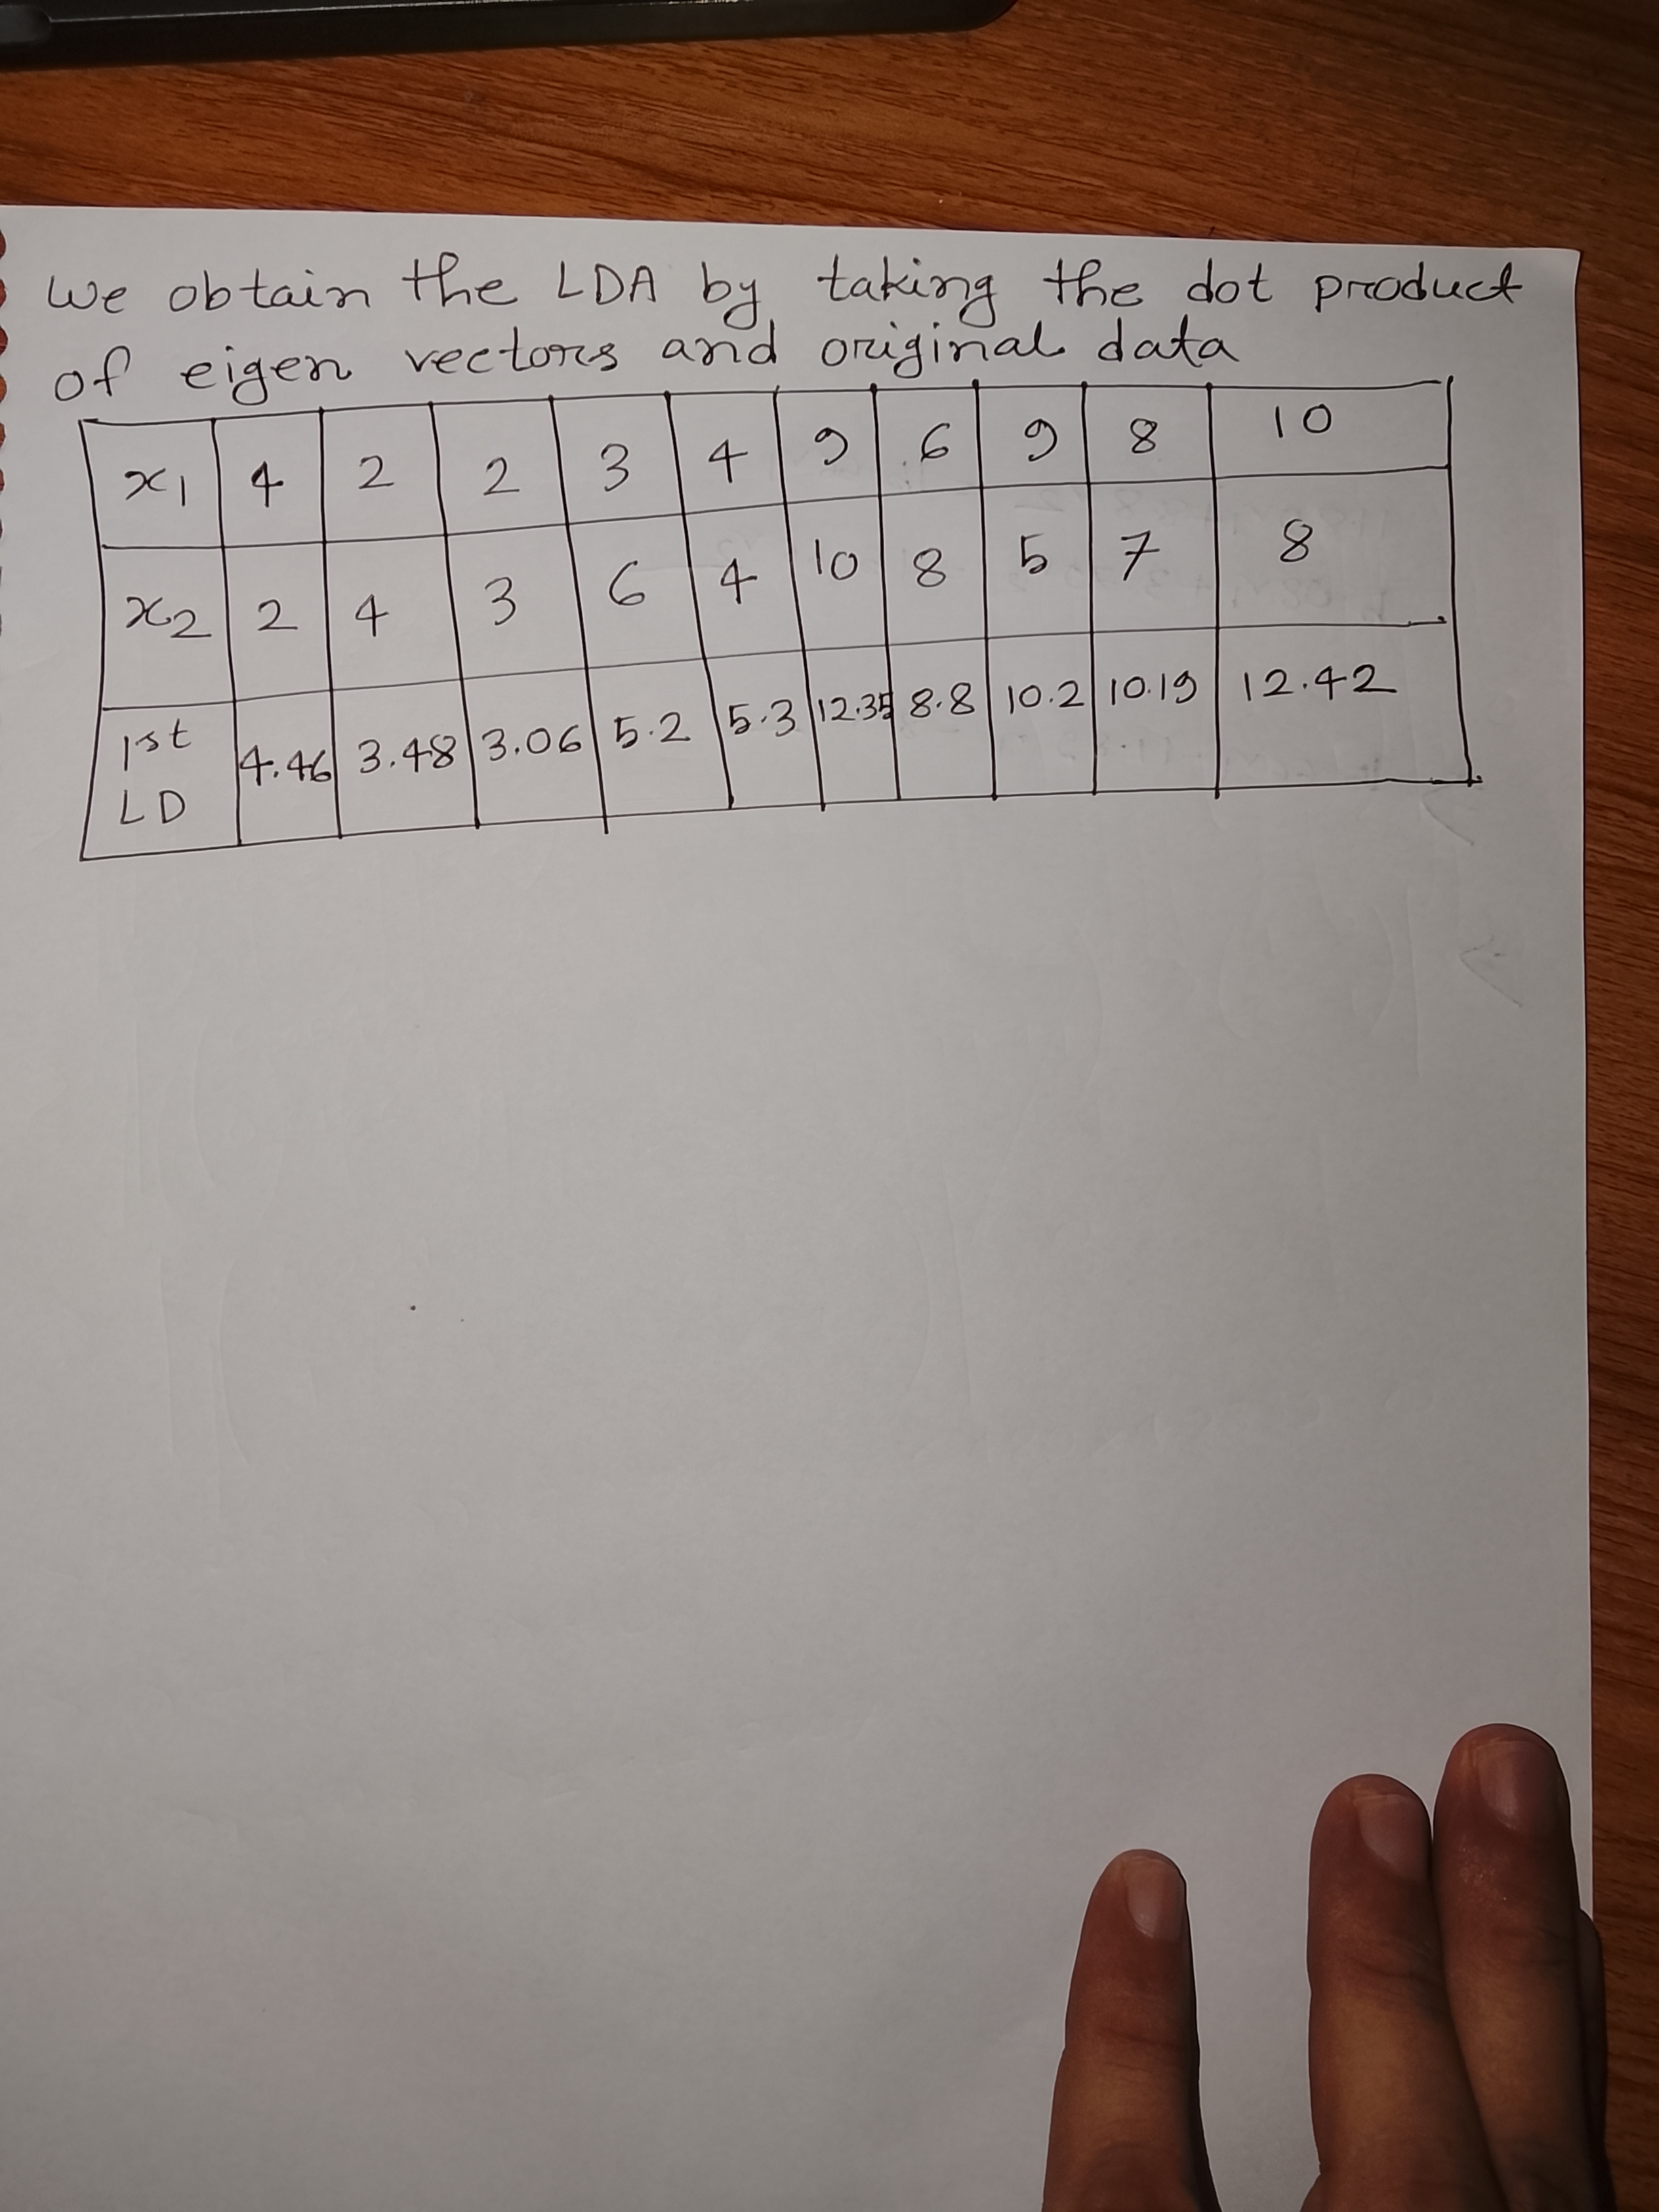 we obtain the LDA by taking the dot product
of eigen vectors and original data
x1 4 2 2 3 4 9 6 9 8 10
x2 2 4 3 6 4 10 8 5 7 8
1st LD 4.46 3.48 3.06 5.2 5.3 12.35 8.8 10.2 10.19 12.42